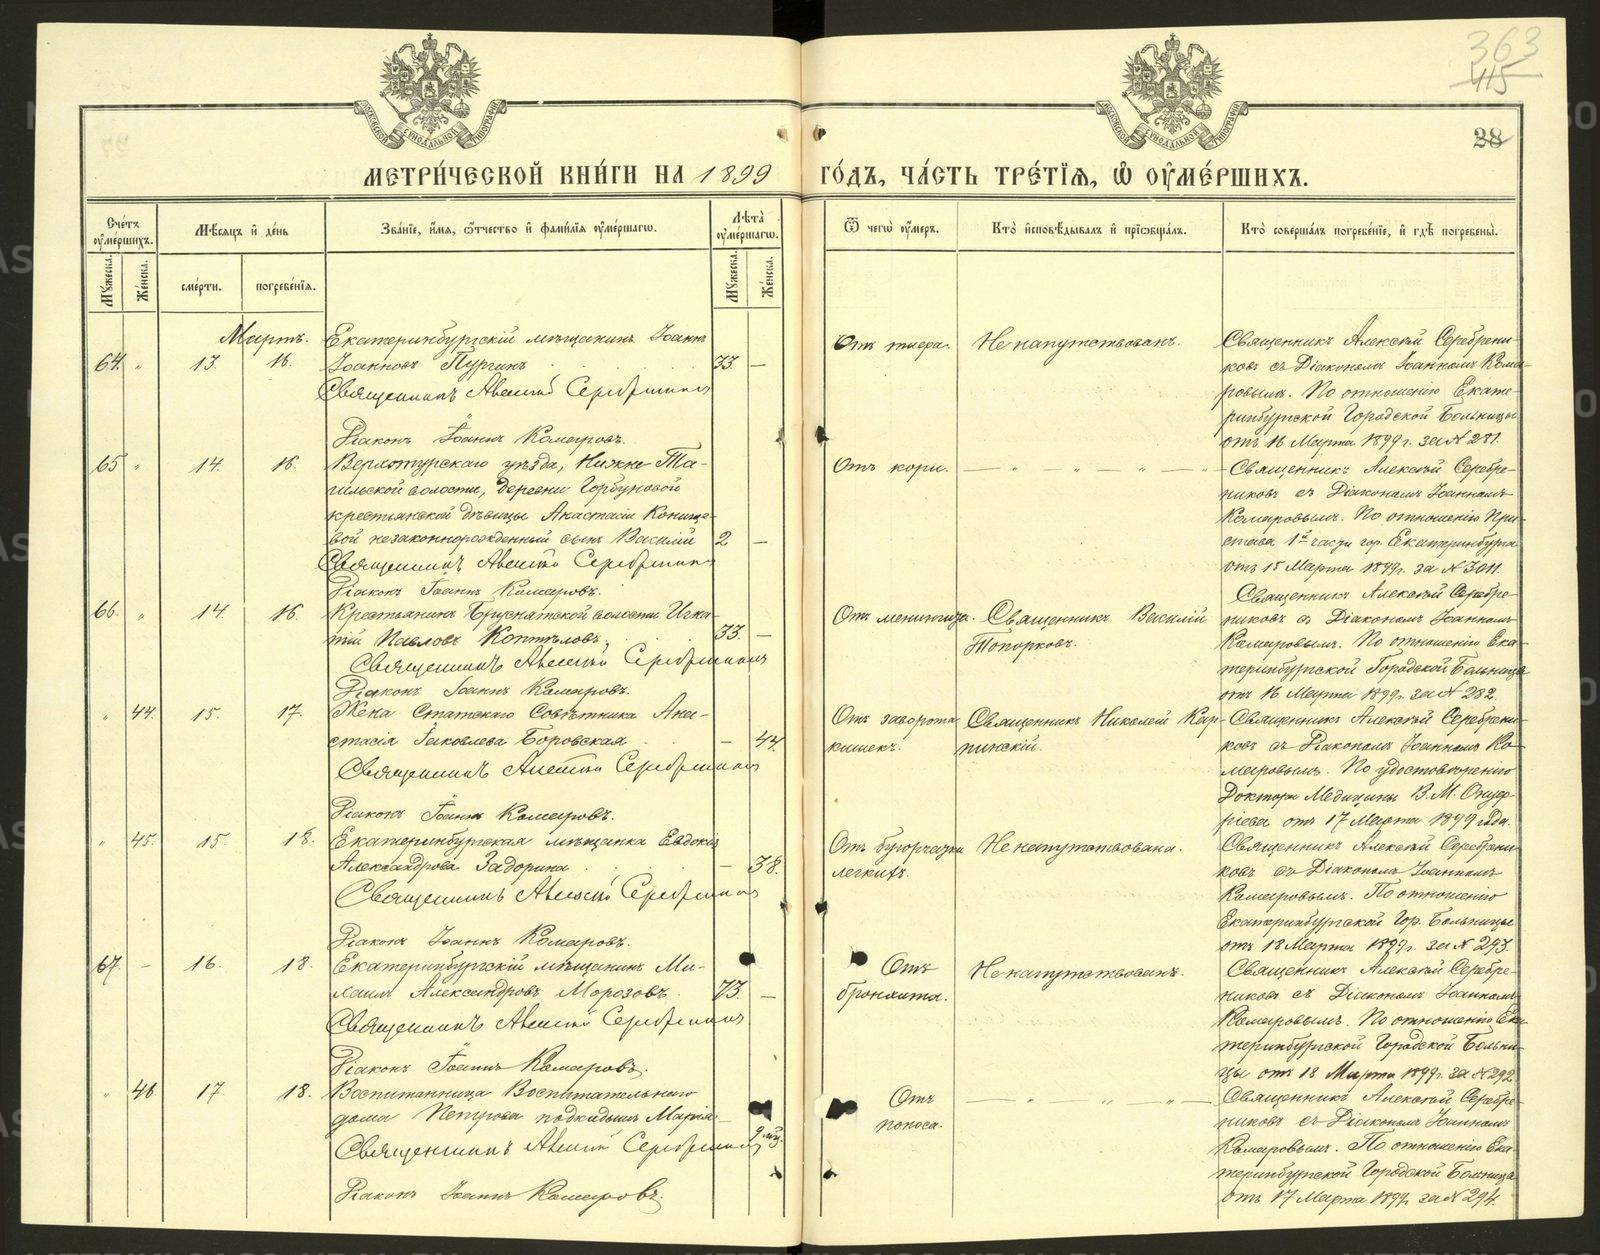 363
415
28
МЕТРИ́ЧЕСКОЙ КНИ́ГИ НА 1899 ГО́ДЪ, ЧА́СТЬ ТРЕ́ТІѦ, Ѡ҆ ОУ҆МЕ́РШИХЪ.
Сче́тъ оу҆ме́ршихъ.
Мꙋ́жеска.
Же́нска.
Мѣ́сѧцъ и҆ де́нь
сме́рти.
погребе́нїѧ.
Зва́нїе, и҆́мѧ, ѻ҆́тчество и҆ фами́лїѧ оу҆ме́ршагѡ.
Лѣ́та оу҆ме́ршагѡ.
Мꙋ́жеска.
Же́нска.
Ѿ чегѡ̀ оу҆́меръ.
Кто̀ и҆сповѣ́дывалъ и҆ прїѡбща́лъ.
Кто̀ соверша́лъ погребе́нїе, и҆ гдѣ̀ погребены̀.
Мартъ.
64. " 13. 16.
Екатеринбургскій мѣщанинъ Іоаннъ
Іоанновъ Пургинъ 33. —
Священникъ Алексій Серебренниковъ
Діаконъ Іоаннъ Комаровъ.
Отъ тифа.
Не напутствованъ.
Священникъ Алексѣй Серебрени-
ковъ съ Діакономъ Іоанномъ Кома-
ровымъ. По отношенію Екате-
ринбургской Городской Больницы
отъ 16 Марта 1899 г. за N 281.
65 " 14. 16.
Верхотурскаго уѣзда, Нижне-Та-
гильской волости, деревни Горбуновой
крестьянской дѣвицы Анастасіи Конище-
вой незаконнорожденный сынъ Василій 2 —
Священникъ Алексій Серебренниковъ
Діаконъ Іоаннъ Комаровъ.
Отъ кори.
— " — " — " —
Священникъ Алексѣй Серебре-
никовъ съ Діакономъ Іоанномъ
Комаровымъ. По отношенію При-
става 1й части гор. Екатеринбурга
отъ 15 Марта 1899 г. за N 3011.
66. " 14. 16.
Крестьянинъ Бруснятской волости Игна-
тій Павловъ Коптѣловъ. 33. —
Священникъ Алексій Серебренниковъ
Діаконъ Іоаннъ Комаровъ.
Отъ менингита.
Священникъ Василій
Топорковъ.
Священникъ Алексѣй Серебре-
никовъ съ Діакономъ Іоанномъ
Комаровымъ. По отношенію Ека-
теринбургской Городской Больницы
отъ 16 Марта 1899 г. за N 282.
" 44. 15. 17.
Жена Статскаго Совѣтника Ана-
стасія Іаковлева Боровская — 44.
Священникъ Алексій Серебренниковъ
Діаконъ Іоаннъ Комаровъ.
Отъ заворота
кишекъ.
Священникъ Николай Кар-
пинскій.
Священникъ Алексѣй Серебрени-
ковъ съ Діакономъ Іоанномъ Ко-
маровымъ. По удостовѣренію
Доктора Медицины В. М. Онуф-
ріева отъ 17 Марта 1899 года.
" 45. 15. 18.
Екатеринбургская мѣщанка Евдокія
Александрова Задорина — 38.
Священникъ Алексій Серебренниковъ
Діаконъ Іоаннъ Комаровъ.
Отъ бугорчатки
легкихъ.
Не напутствована.
Священникъ Алексѣй Серебрени-
ковъ съ Діакономъ Іоанномъ
Комаровымъ. По отношенію
Екатеринбургской Гор. Больницы
отъ 18 Марта 1899 г. за N 293.
67. — 16. 18.
Екатеринбургскій мѣщанинъ Ми-
хаилъ Александровъ Морозовъ 73. —
Священникъ Алексій Серебренниковъ
Діаконъ Іоаннъ Комаровъ.
Отъ
бронхита.
Не напутствованъ.
Священникъ Алексѣй Серебре-
никовъ съ Діакономъ Іоанномъ
Комаровымъ. По отношенію Ека-
теринбургской Городской Больни-
цы отъ 18 Марта 1899 г. за N 292.
" 46. 17 18.
Воспитанница Воспитательнаго
дома Петрова подкидышъ Марія 9 мѣс.
Священникъ Алексій Серебренниковъ
Діаконъ Іоаннъ Комаровъ.
Отъ
поноса.
— " — " —
Священникъ Алексѣй Серебре-
никовъ съ Діакономъ Іоанномъ
Комаровымъ. По отношенію Ека-
теринбургской Городской Больницы
отъ 17 Марта 1899 г. за N 294.